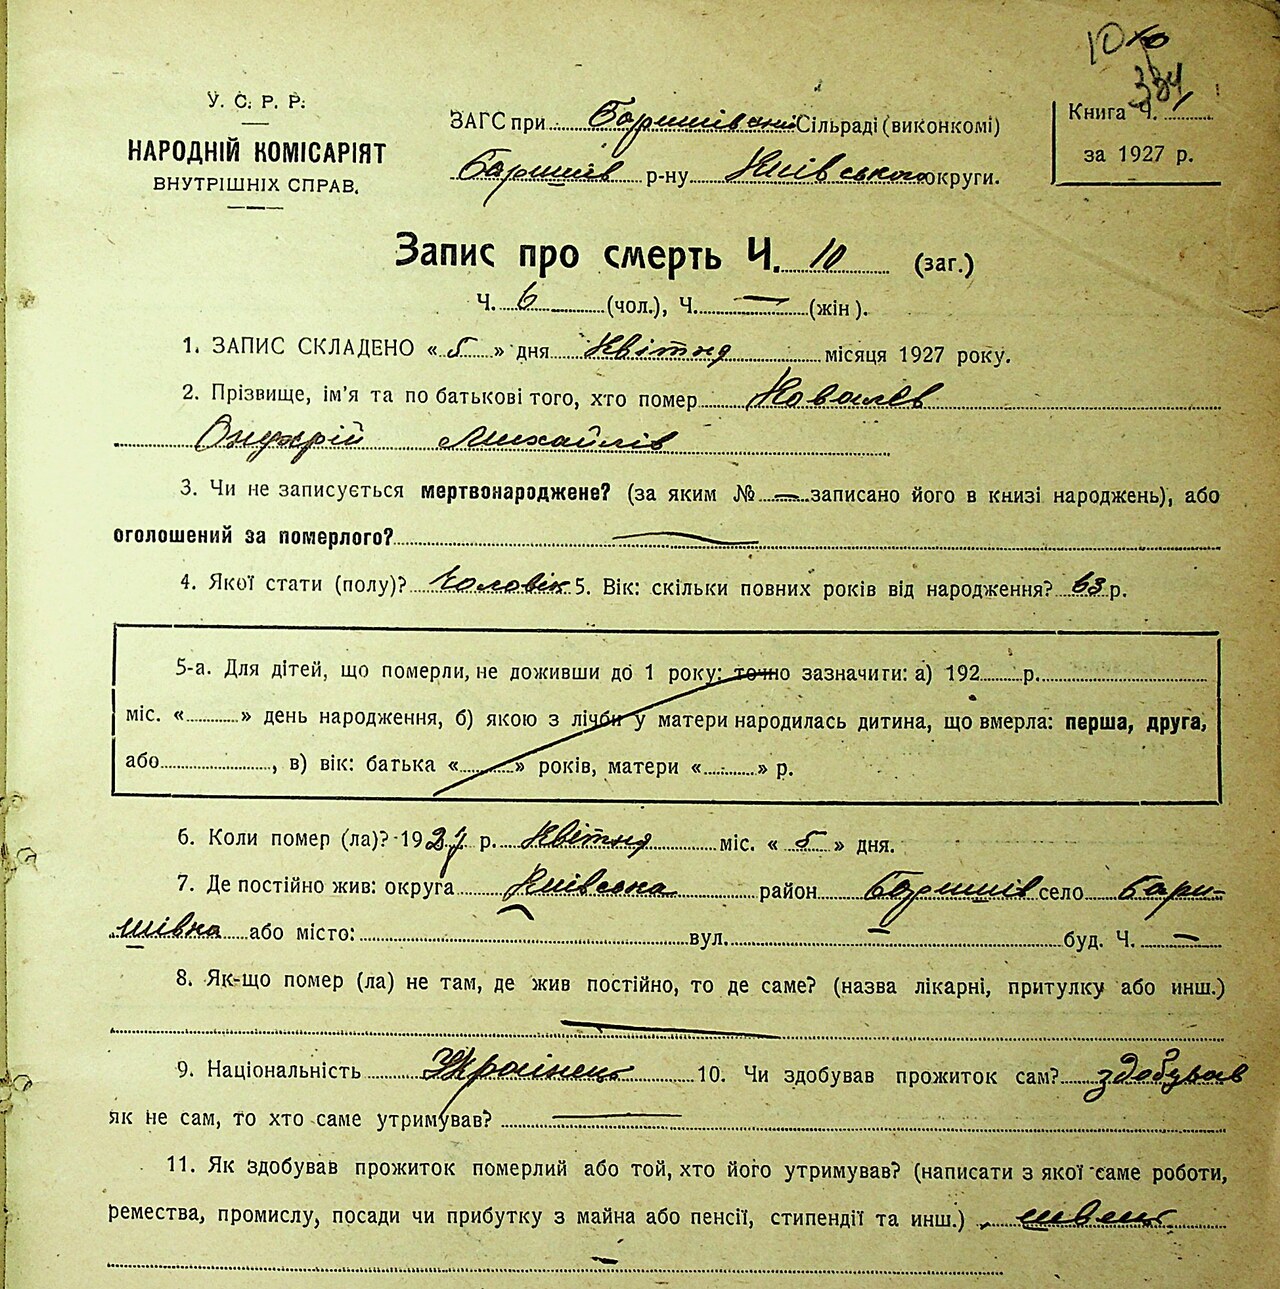 334
У. С. Р. Р.
НАРОДНІЙ КОМІСАРІЯТ
ВНУТРІШНІХ СПРАВ.
ЗАГС при Баришівскій Сільраді (виконкомі)
Баришів р-ну Київського округи.
Книга Ч. 1
за 1927 р.
Запис про смерть Ч. 10 (заг.)
Ч. 6 (чол.), Ч. — (жін).
1. ЗАПИС СКЛАДЕНО « 5 » дня Квітня місяця 1927 року.
2. Прізвище, ім'я та по батькові того, хто помер Ковалєв
Онухрій Михайлів
3. Чи не записується мертвонароджене? (за яким № — записано його в книзі народжень), або
оголошений за померлого? —
4. Якої стати (полу)? Чоловік 5. Вік: скільки повних років від народження? 63 р.
5-а. Для дітей, що померли, не доживши до 1 року: точно зазначити: а) 192 р.
міс. « » день народження, б) якою з лічби у матери народилась дитина, що вмерла: перша, друга,
або , в) вік: батька « » років, матери « » р.
6. Коли помер (ла)? 1927 р. Квітня міс. « 5 » дня.
7. Де постійно жив: округа Київська район Баришів село Бари-
шівка або місто: — вул. — буд. Ч. —
8. Як-що помер (ла) не там, де жив постійно, то де саме? (назва лікарні, притулку або инш.)
—
9. Національність Українець 10. Чи здобував прожиток сам? здобував
як не сам, то хто саме утримував? —
11. Як здобував прожиток померлий або той, хто його утримував? (написати з якої саме роботи,
ремества, промислу, посади чи прибутку з майна або пенсії, стипендії та инш.) швець
—